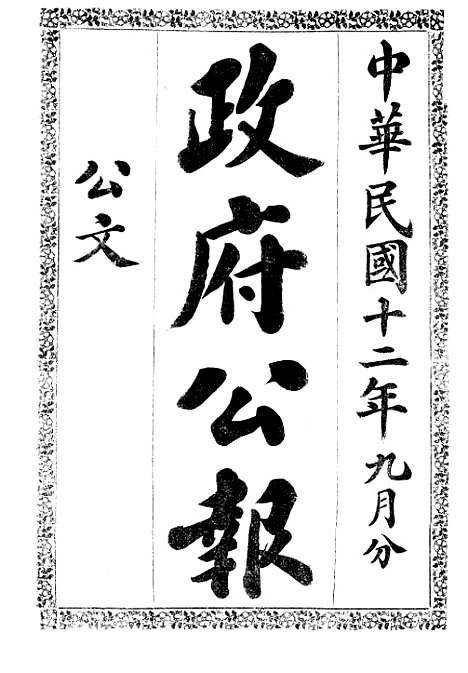 中華民國十二年九月分
政府公報
公文